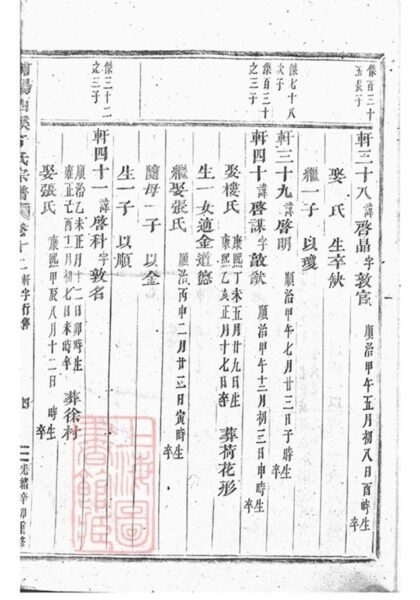 傑百三十五長子
軒三十八 諱啓晶字敦官 順治甲午五月初八日酉時生 卒
娶 氏 生卒缺
繼一子 以瓊
傑七十八次子
軒三十九 諱啓明 順治甲午七月廿三日子時生 卒
傑百三十之三子
軒四十 諱啓謀字敦猷 順治甲午十二月初三日申時生 卒
娶樓氏 康熙丁未五月廿九日生 康熙乙亥正月十七日卒 葬荷花形
生一女適金道德
繼娶張氏 順治丙申二月廿三日寅時生 卒
隨母一子 以金
生一子 以順
傑三十二之三子
軒四十一 諱啓科字敦名 順治乙未正月十二日卯時生 雍正乙酉十一月初七日未時卒 葬徐村
娶張氏 康熙甲辰八月十二日 時生 卒
方氏宗譜 卷十二 軒字行傳 四 光緒辛卯重修
上海圖書館藏